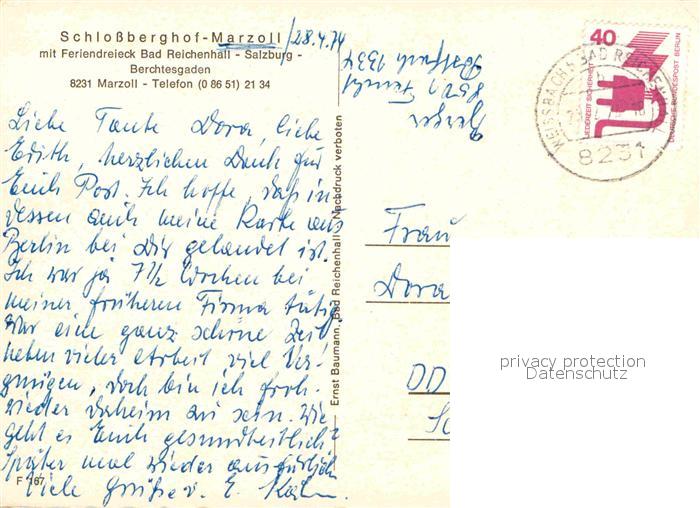 Schloßberghof-Marzoll
mit Feriendreieck Bad Reichenhall - Salzburg -
Berchtesgaden
8231 Marzoll - Telefon (0 86 51) 21 34
28.4.74
Liebe Tante Dora, liebe
Edith, herzlichen Dank für
Euch Post. Ich hoffe, daß in-
dessen auch meine Karte aus
Berlin bei Dir gelandet ist.
Ich war ja 7½ Wochen bei
meiner früheren Firma tätig
War eine ganz schöne Zeit
neben vieler Arbeit viel Ver-
gnügen, doch bin ich froh
wieder daheim zu sein. Wie
geht es Euch gesundheitlich?
Später mal wieder ausführlich
Viele Grüße v. E.
F 167
Ernst Baumann, Bad Reichenhall, Nachdruck verboten
Berger
Postfach 1334
40
JEDERZEIT SICHERHEIT
DEUTSCHE BUNDESPOST BERLIN
WEISSBACH B BAD REICHEN
8231
Frau
Dora
DD
privacy protection
Datenschutz